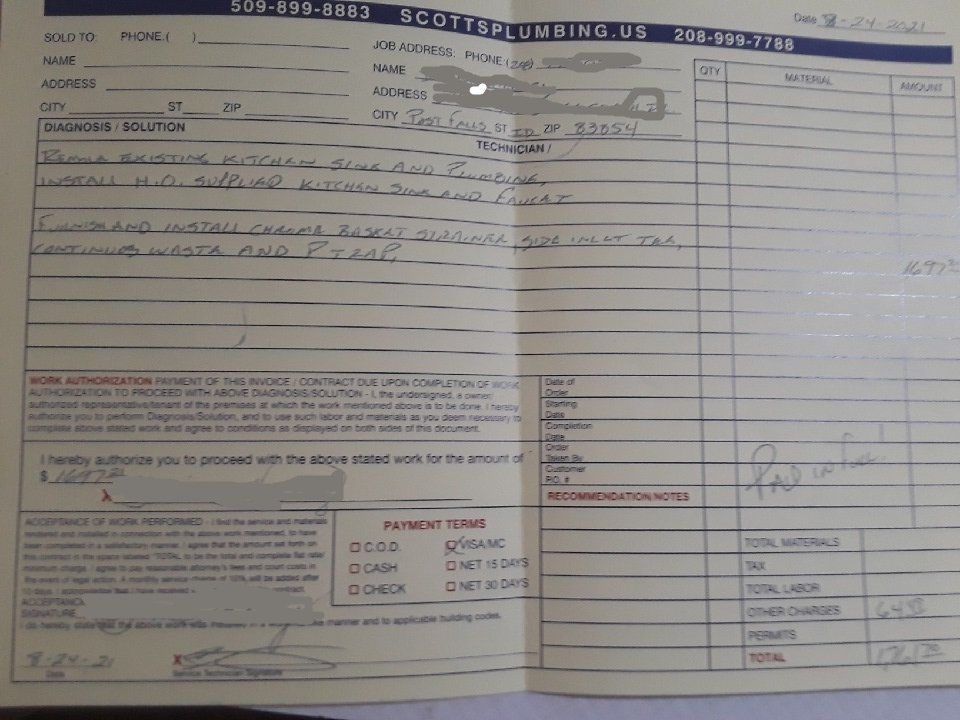 509-899-8883 SCOTTSPLUMBING.US 208-999-7788
Date 8-24-2021
SOLD TO: PHONE ( )
NAME
ADDRESS
CITY ST ZIP
JOB ADDRESS: PHONE (208)
NAME
ADDRESS
CITY POST FALLS ST ID ZIP 83854
QTY MATERIAL AMOUNT
DIAGNOSIS / SOLUTION
TECHNICIAN /
EXISTING KITCHEN SINK AND PLUMBING,
INSTALL H.O. SUPPLIED KITCHEN SINK AND FAUCET
FURNISH AND INSTALL CHROME BASKET STRAINER, SIDE INLET TEE,
CONTINUOS WASTE AND P TRAP,
1697
WORK AUTHORIZATION PAYMENT OF THIS INVOICE / CONTRACT DUE UPON COMPLETION OF WORK
AUTHORIZATION TO PROCEED WITH ABOVE DIAGNOSIS/SOLUTION - I, the undersigned, a owner/
authorized representative/tenant of the premises at which the work mentioned above is to be done. I hereby
authorize you to perform Diagnosis/Solution, and to use such labor and materials as you deem necessary to
complete above stated work and agree to conditions as displayed on both sides of this document.
I hereby authorize you to proceed with the above stated work for the amount of
$ 1697
X
Date of
Order
Starting
Date
Completion
Date
Order
Taken By
Customer
P.O. #
PAID IN FULL!
RECOMMENDATION/NOTES
ACCEPTANCE OF WORK PERFORMED - I find the service and materials
rendered and installed in connection with the above work mentioned, to have
been completed in a satisfactory manner. I agree that the amount set forth on
this contract in the space labeled "TOTAL" to be the total and complete flat rate/
minimum charge. I agree to pay reasonable attorney's fees and court costs in
the event of legal action. A monthly service charge of 10% will be added after
10 days. I acknowledge that I have received contract.
ACCEPTANCE
SIGNATURE
I do hereby state that the above work was manner and to applicable building codes.
8-24-21
Date
X
Service Technician Signature
PAYMENT TERMS
C.O.D.
VISA/MC
CASH
NET 15 DAYS
CHECK
NET 30 DAYS
TOTAL MATERIALS
TAX
TOTAL LABOR
OTHER CHARGES 64
PERMITS
TOTAL 1761